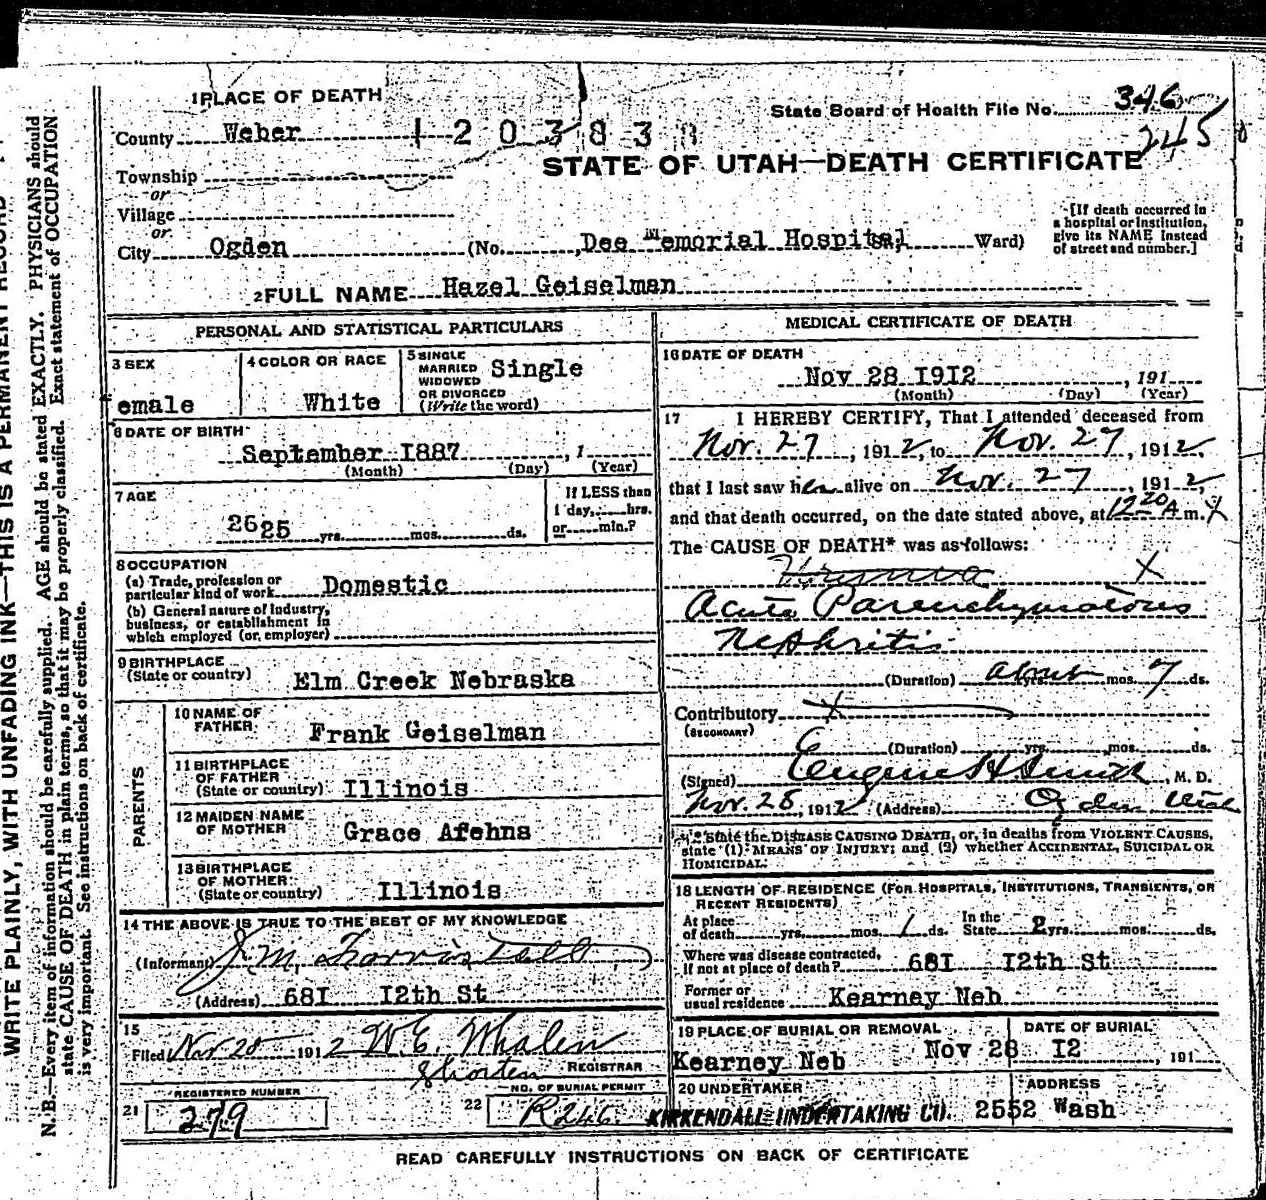 1 PLACE OF DEATH
State Board of Health File No. 346
245
County Weber
1203838
STATE OF UTAH—DEATH CERTIFICATE
Township
or
Village
or
City Ogden (No. , Dee Memorial Hospital, Ward)
[If death occurred in
a hospital or institution,
give its NAME instead
of street and number.]
2 FULL NAME Hazel Geiselman
PERSONAL AND STATISTICAL PARTICULARS
3 SEX
emale
4 COLOR OR RACE
White
5 SINGLE
MARRIED
WIDOWED
OR DIVORCED
(Write the word)
Single
6 DATE OF BIRTH
September 1887, 1
(Month) (Day) (Year)
7 AGE
26 25 yrs. mos. ds.
If LESS than
1 day, hrs.
or min.?
8 OCCUPATION
(a) Trade, profession or
particular kind of work Domestic
(b) General nature of industry,
business, or establishment in
which employed (or employer)
9 BIRTHPLACE
(State or country) Elm Creek Nebraska
PARENTS
10 NAME OF
FATHER Frank Geiselman
11 BIRTHPLACE
OF FATHER
(State or country) Illinois
12 MAIDEN NAME
OF MOTHER Grace Afehns
13 BIRTHPLACE
OF MOTHER
(State or country) Illinois
14 THE ABOVE IS TRUE TO THE BEST OF MY KNOWLEDGE
(Informant) J. M. Forristall
(Address) 681 12th St
15
Filed Nov 28 1912 W. E. Whalen
REGISTRAR
REGISTERED NUMBER
21 279
NO. OF BURIAL PERMIT
22 R246
MEDICAL CERTIFICATE OF DEATH
16 DATE OF DEATH
Nov 28 1912, 191
(Month) (Day) (Year)
17 I HEREBY CERTIFY, That I attended deceased from
Nov. 27, 1912, to Nov. 27, 1912,
that I last saw her alive on Nov. 27, 1912,
and that death occurred, on the date stated above, at 12 20 A m.
The CAUSE OF DEATH* was as follows:
Acute Parenchymatous
Nephritis
(Duration) about yrs. mos. 7 ds.
Contributory
(SECONDARY)
(Duration) yrs. mos. ds.
(Signed) Eugene H. Smith, M. D.
Nov. 28, 1912 (Address) Ogden Utah
* State the DISEASE CAUSING DEATH, or, in deaths from VIOLENT CAUSES,
state (1) MEANS OF INJURY; and (2) whether ACCIDENTAL, SUICIDAL OR
HOMICIDAL.
18 LENGTH OF RESIDENCE (FOR HOSPITALS, INSTITUTIONS, TRANSIENTS, OR
RECENT RESIDENTS)
At place
of death yrs. mos. 1 ds.
In the
State 2 yrs. mos. ds.
Where was disease contracted,
if not at place of death? 681 12th St
Former or
usual residence Kearney Neb
19 PLACE OF BURIAL OR REMOVAL
Kearney Neb
DATE OF BURIAL
Nov 28 12, 191
20 UNDERTAKER
KIRKENDALL UNDERTAKING CO.
ADDRESS
2552 Wash
READ CAREFULLY INSTRUCTIONS ON BACK OF CERTIFICATE
WRITE PLAINLY, WITH UNFADING INK—THIS IS A PERMANENT RECORD
N. B.—Every item of information should be carefully supplied. AGE should be stated EXACTLY. PHYSICIANS should
state CAUSE OF DEATH in plain terms, so that it may be properly classified. Exact statement of OCCUPATION
is very important. See instructions on back of certificate.